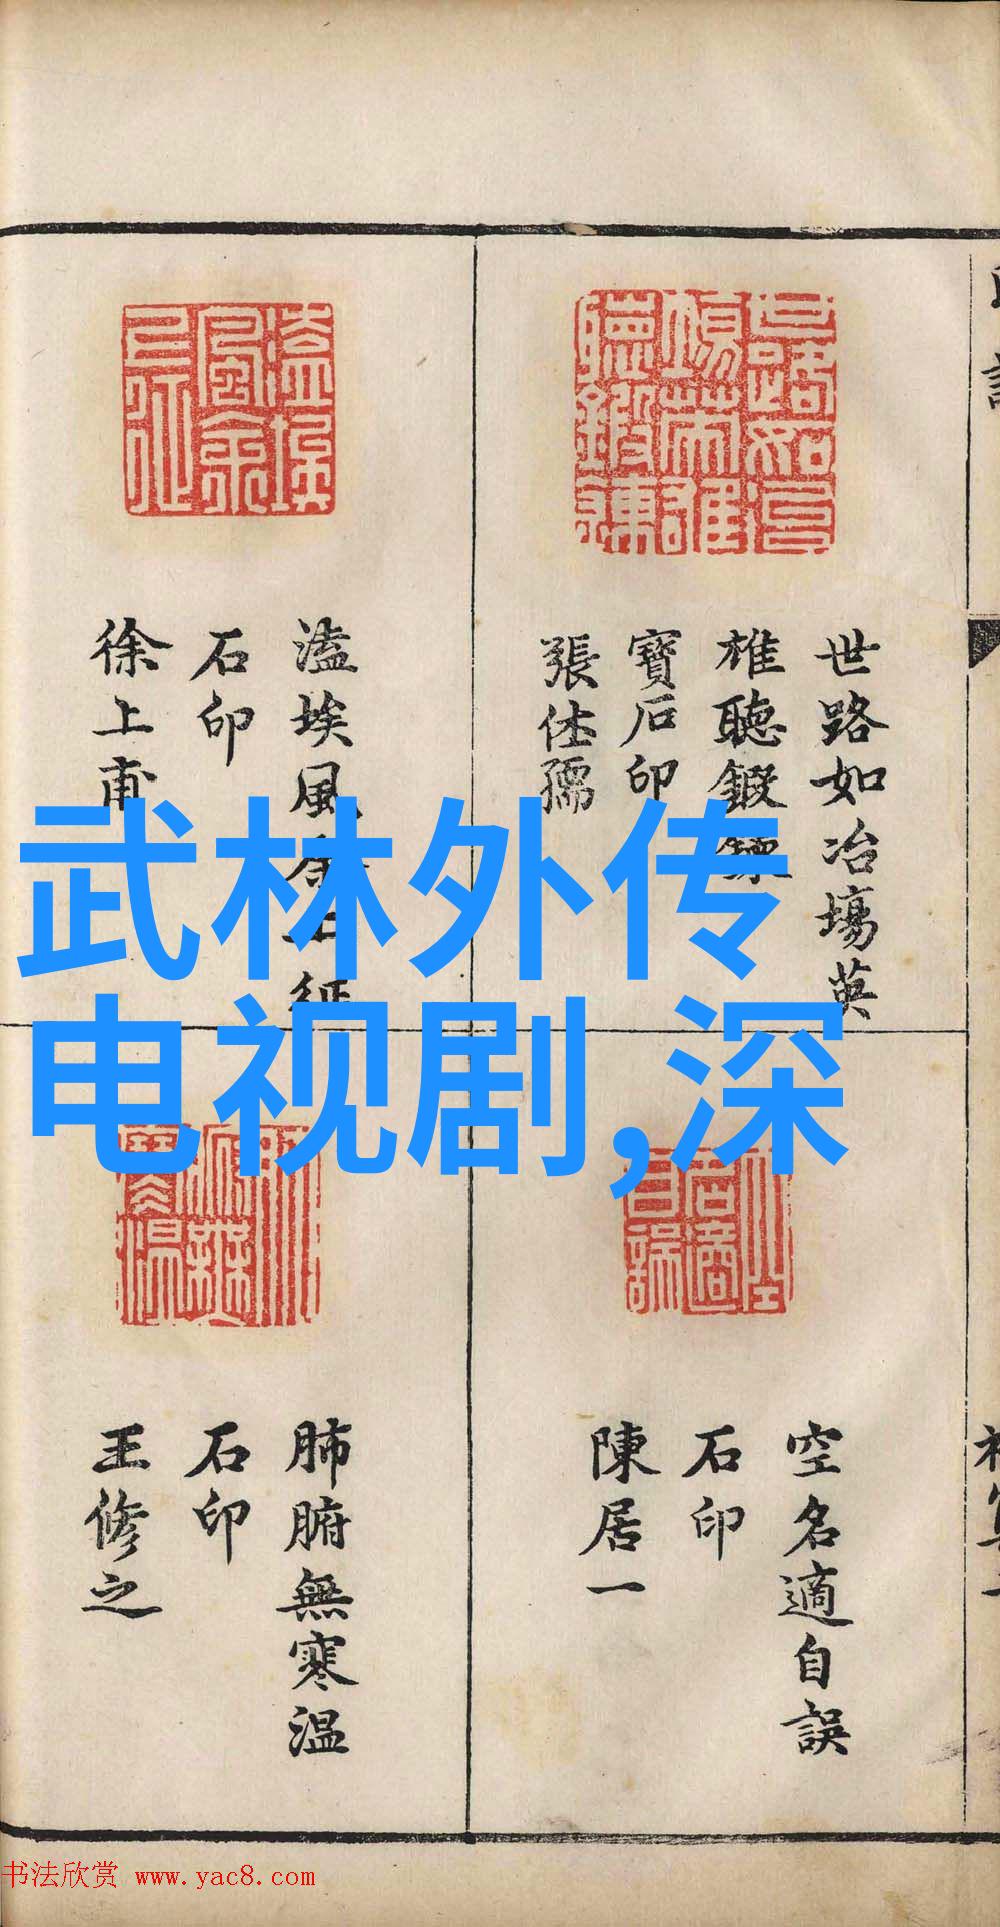 武林外传
电视剧,深
世路如冶場英
雄聽鍛鍊
寶石印
張仕孺
溘埃風余上征
石印
徐上甫
空名適自誤
石印
陳居一
肺腑無寒温
石印
王修之
书法欣赏 www.yac8.com